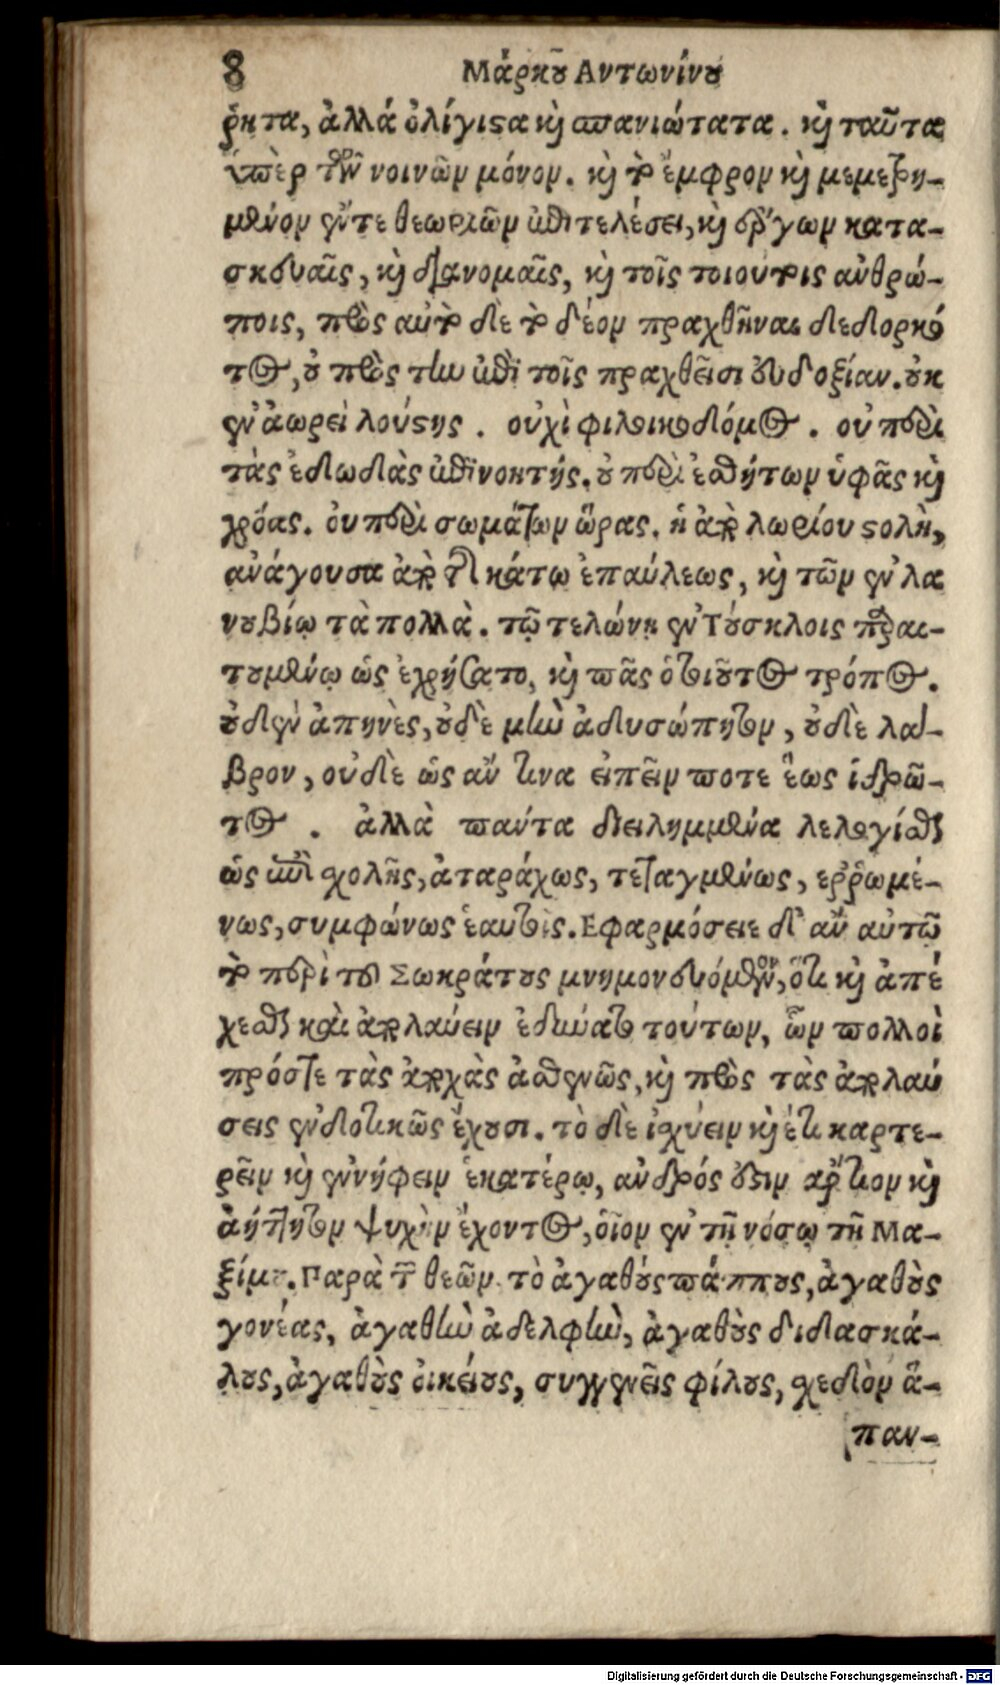 8 Μάρκου Αντωνίνου
ῤητα, ἀλλά ὀλίγιστα καὶ σπανιώτατα. καὶ ταῦτα
ὑπὲρ τῶν κοινῶν μόνον. καὶ τὸ ἔμφρον καὶ μεμετρη-
μένον ἔν τε θεωριῶν ἐπιτελέσει, καὶ ἔργων κατα-
σκευαῖς, καὶ διανομαῖς, καὶ τοῖς τοιούτοις ἀνθρώ-
ποις, πρὸς αὐτὸ δὲ τὸ δέον πραχθῆναι δεδορκό
τος, οὐ πρὸς τὴν ἐπὶ τοῖς πραχθεῖσι εὐδοξίαν. οὐκ
ἐν ἀωρεὶ λούστης. οὐχὶ φιλοικοδόμος. οὐ περὶ
τὰς ἐδωδὰς ἐπινοητής. οὐ περὶ ἐσθήτων ὑφᾶς καὶ
χρόας. οὐ περὶ σωμάτων ὥρας. ἡ ἀπὸ λωρίου στολὴ,
ἀνάγουσα ἀπὸ τῆς κάτω ἐπαύλεως, καὶ τῶν ἐν λα
νουβίῳ τὰ πολλὰ. τῷ τελώνῃ ἐν Τούσκλοις παραι-
τουμένῳ ὡς ἐχρήσατο, καὶ πᾶς ὁ τοιοῦτος τρόπος.
οὐδὲν ἀπηνὲς, οὐδὲ μὴν ἀδυσώπητον, οὐδὲ λα-
βρον, οὐδὲ ὡς ἄν τινα εἰπεῖν ποτε ἕως ἱδρῶ-
τος. ἀλλὰ πάντα διειλημμένα λελογίσθαι
ὡς ἐπὶ σχολῆς, ἀταράχως, τεταγμένως, ἐῤῥωμέ-
νως, συμφώνως ἑαυτοῖς. Εφαρμόσειε δ' ἂν αὐτῷ
τὸ περὶ τοῦ Σωκράτους μνημονευόμενον, ὅτι καὶ ἀπέ
χεσθαι καὶ ἀπολαύειν ἐδύνατο τούτων, ὧν πολλοὶ
πρός τε τὰς ἀποχὰς ἀσθενῶς, καὶ πρὸς τὰς ἀπολαύ
σεις ἐνδοτικῶς ἔχουσι. τὸ δὲ ἰσχύειν καὶ ἔτι καρτε-
ρεῖν καὶ ἐννήφειν ἑκατέρῳ, ἀνδρός ἐστιν ἄρτιον καὶ
ἀήττητον ψυχὴν ἔχοντος, οἷον ἐν τῇ νόσῳ τῇ Μα-
ξίμου. Παρὰ τῶν θεῶν τὸ ἀγαθούς πάππους, ἀγαθοὺς
γονέας, ἀγαθὴν ἀδελφὴν, ἀγαθοὺς διδασκά-
λους, ἀγαθοὺς οἰκείους, συγγενεῖς φίλους, σχεδὸν ἅ-
παν-
Digitalisierung gefördert durch die Deutsche Forschungsgemeinschaft - DFG